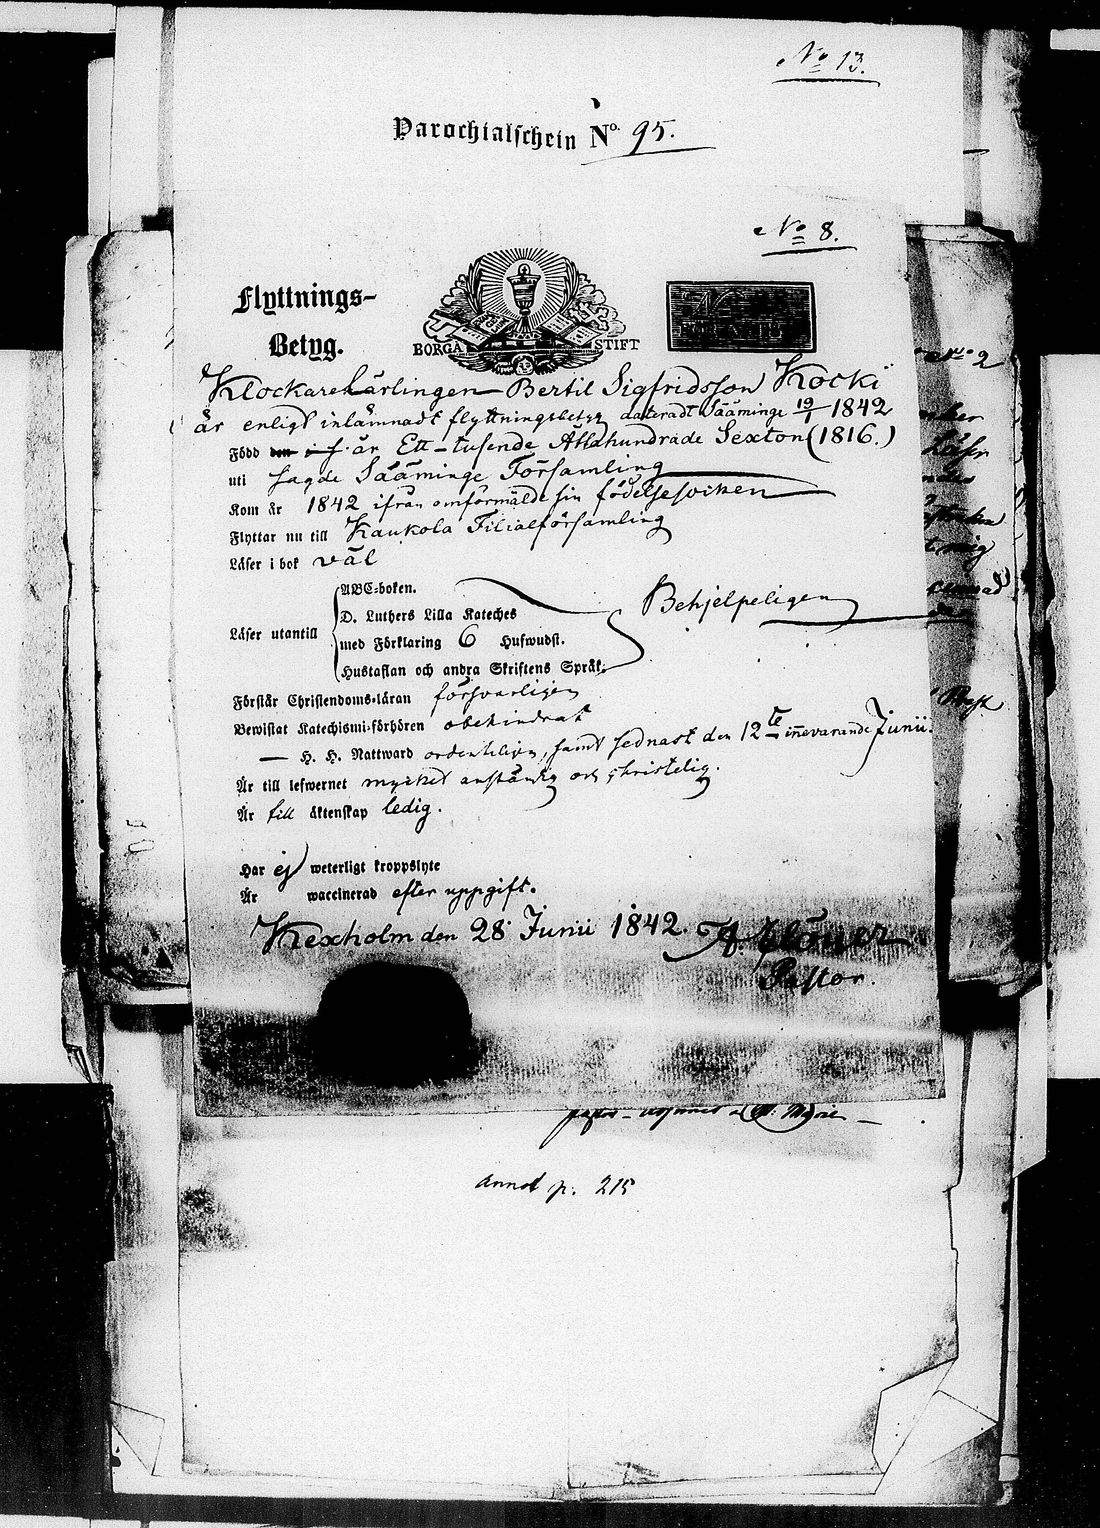 No 13.
Parochialschein No. 95.
No 8.
Flyttnings-
Betyg.
BORGÅ STIFT
Klockarelärlingen Bertil Sigfridsson Kocki
är enligt inlämnadt flyttningsbetyg dateradt Sääminge 19/1 1842
Född år Ett-tusende Åttahundrade Sexton (1816.)
uti sagde Sääminge Församling
Kom år 1842 ifrån omförmälde sin födelsesocken
Flyttar nu till Kaukola Filialförsamling
Läser i bok väl
ABC-boken.
D. Luthers Lilla Kateches
Läser utantill Behjelpeligen
med Förklaring 6 Hufwudst.
Hustaflan och andra Skriftens Språk.
Förstår Christendoms-läran försvarligen
Bewistat Katechismi-förhören obehindrat
— H. H. Nattward ordenteligen, samt sednast den 12te innevarande Junii.
Är till lefwernet mycket anständig och christelig.
Är till äktenskap ledig.
Har ej weterligt kroppslyte
Är waccinerad efter uppgift.
Kexholm den 28 Junii 1842.
Pastor.
Annot p. 215